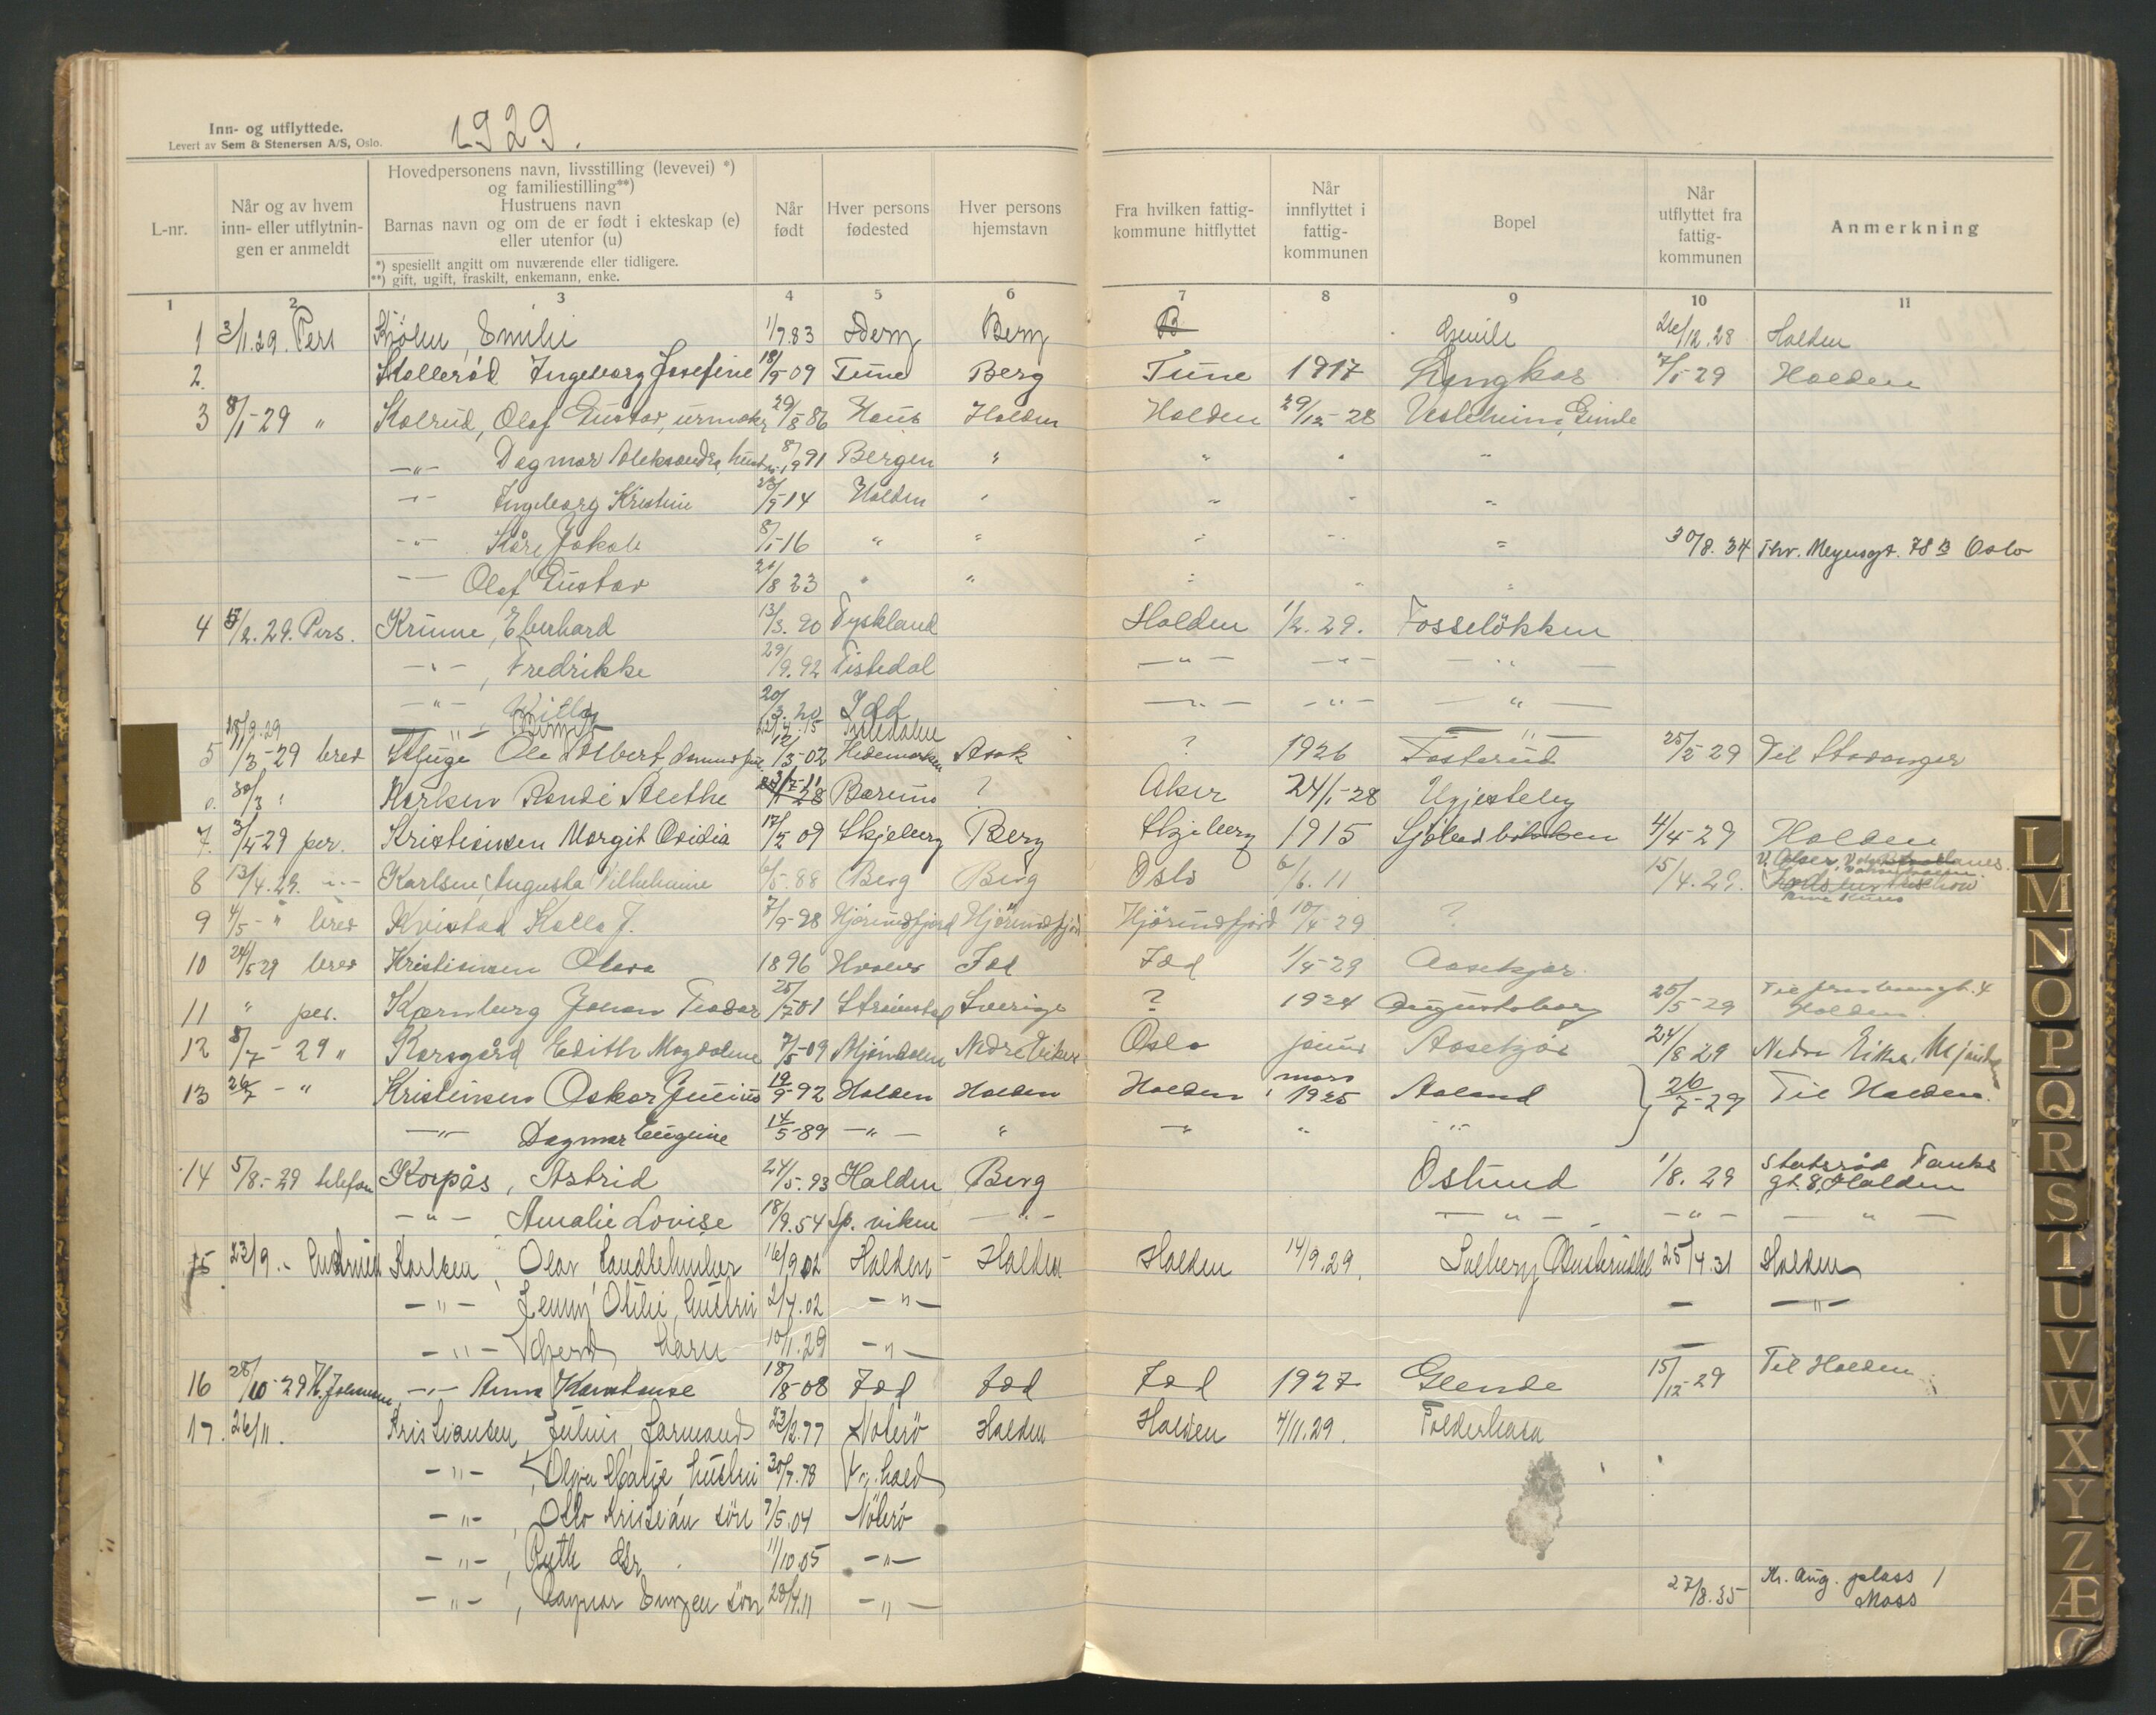 Inn- og utflyttede.
Levert av Sem & Stenersen A/S, Oslo.
1929.
L-nr.
Når og av hvem inn- eller utflytnin-gen er anmeldt
Hovedpersonens navn, livsstilling (levevei) *)
og familiestilling**)
Hustruens navn
Barnas navn og om de er født i ekteskap (e)
eller utenfor (u)
*) spesielt angitt om nuværende eller tidligere.
**) gift, ugift, fraskilt, enkemann, enke.
Når født
Hver persons fødested
Hver persons hjemstavn
Fra hvilken fattig-kommune hitflyttet
Når innflyttet i fattig-kommunen
Bopel
Når utflyttet fra fattig-kommunen
Anmerkning
1 2 3 4 5 6 7 8 9 10 11
1 3/1.29. Pers Emilie 1/7.83 Berg B 28 Halden
2. Kollerød Ingeborg Josefine 18/9 09 Tune Berg Tune 1917 7/1 29 Halden
3 8/1-29 " Kolrud, Olaf Gustav, urmaker 29/8 86 Halden Halden 29/12-28 Gimle
-"- Dagmar Aleksandra, hustru 91 Bergen " " " "
-"- Ingeborg Kristine 14 Halden " " " "
-"- Kåre Jakob 8/1 16 " " " " " 30/8.34 Thv. Meyersgt. 78 B Oslo
-"- Olaf Gustav 8 23 " " " " "
4 /2.29. Pers. Krume, Eberhard 13/3.90 Tyskland Halden 1/2.29. Fosseløkken
-"-, Fredrikke 29/9.92 Tistedal -"- -"- -"-
-"-, 20/3.20 Idd -"- -"- -"-
5 11/3-29 brev Ole Albert 12/3-02 Hedemarken Asak ? 1926 Fosterud 25/2 29 Til Stavanger
30/3 " Karlsen Randi Alethe Bærum ? Aker 24/1-28
7. 3/4-29 per. Kristiansen Margit Ovidia 17/2 09 Skjeberg Berg Skjeberg 1915 4/4-29 Halden
8 13/4.29. -"- Karlsen, Augusta Vilhelmine 6/5.88 Berg Berg Oslo 6/6.11 15/4.29.
9 4/5-" brev Kvistad Kolla J. 7/9-28 Hjørundfjord Hjørundfjord Hjørundfjord 10/4-29 ?
10 24/5 29 brev Kristiansen Olava 1896 Hvaler Idd Idd 1/4-29 Aasekjær
11 " per. Kornberg Johan Teodor 25/7 01 Strømstad Sverige ? 1924 Augustoborg 25/5-29 Halden.
12 8/7-29 " Korsgård Edith Magdalene 7/5-09 Mjøndalen Nedre Eiker Oslo Aasekjær 24/8 29 Nedre Eiker,
13 26/7-" Kristensen Oskar Junius 19/9-92 Halden Halden Halden mars 1925 Aaland 26/7-29 Til Halden.
-"- Dagmar Eugenie 14/5-89 -"- " -"- " "
14 5/8.-29 telefon Korpås, Astrid 24/5.93 Halden Berg Østlund 1/8.29 Statsråd Tanks gt. 8, Halden
-"- Amalie Lovise 18/9.54 Sp. viken -"- -"- -"- -"-
15 23/9.- Karlsen, Olav, 16/9 02 Halden - Halden Halden 14/9.29. Solberg 25/4.31 Halden
-"- Jenny Otilie, hustru 2/7.02 -"- - -"-
-"- barn 10/1.29 -"- -
16 28/10-29 -"- Anna Konstanse 18/8-08 Idd Idd Idd 1927 Glende 15/12-29 Til Halden
17. 26/11. Kristiansen, Julius, 23/2.77 Nøterø Halden Halden 4/11.29.
-"-, Marie, hustru 30/7.78
-"-, Otto Kristian søn 7/5.04 Nøterø
-"-, Ruth dtr. 11/10.05 -"-
-"-, Ragnar Eugen søn 28/4.11 -"- 27/8.35 Kr. Aug. plass 1 Moss
L M N O P Q R S T U V W X Y Z Æ